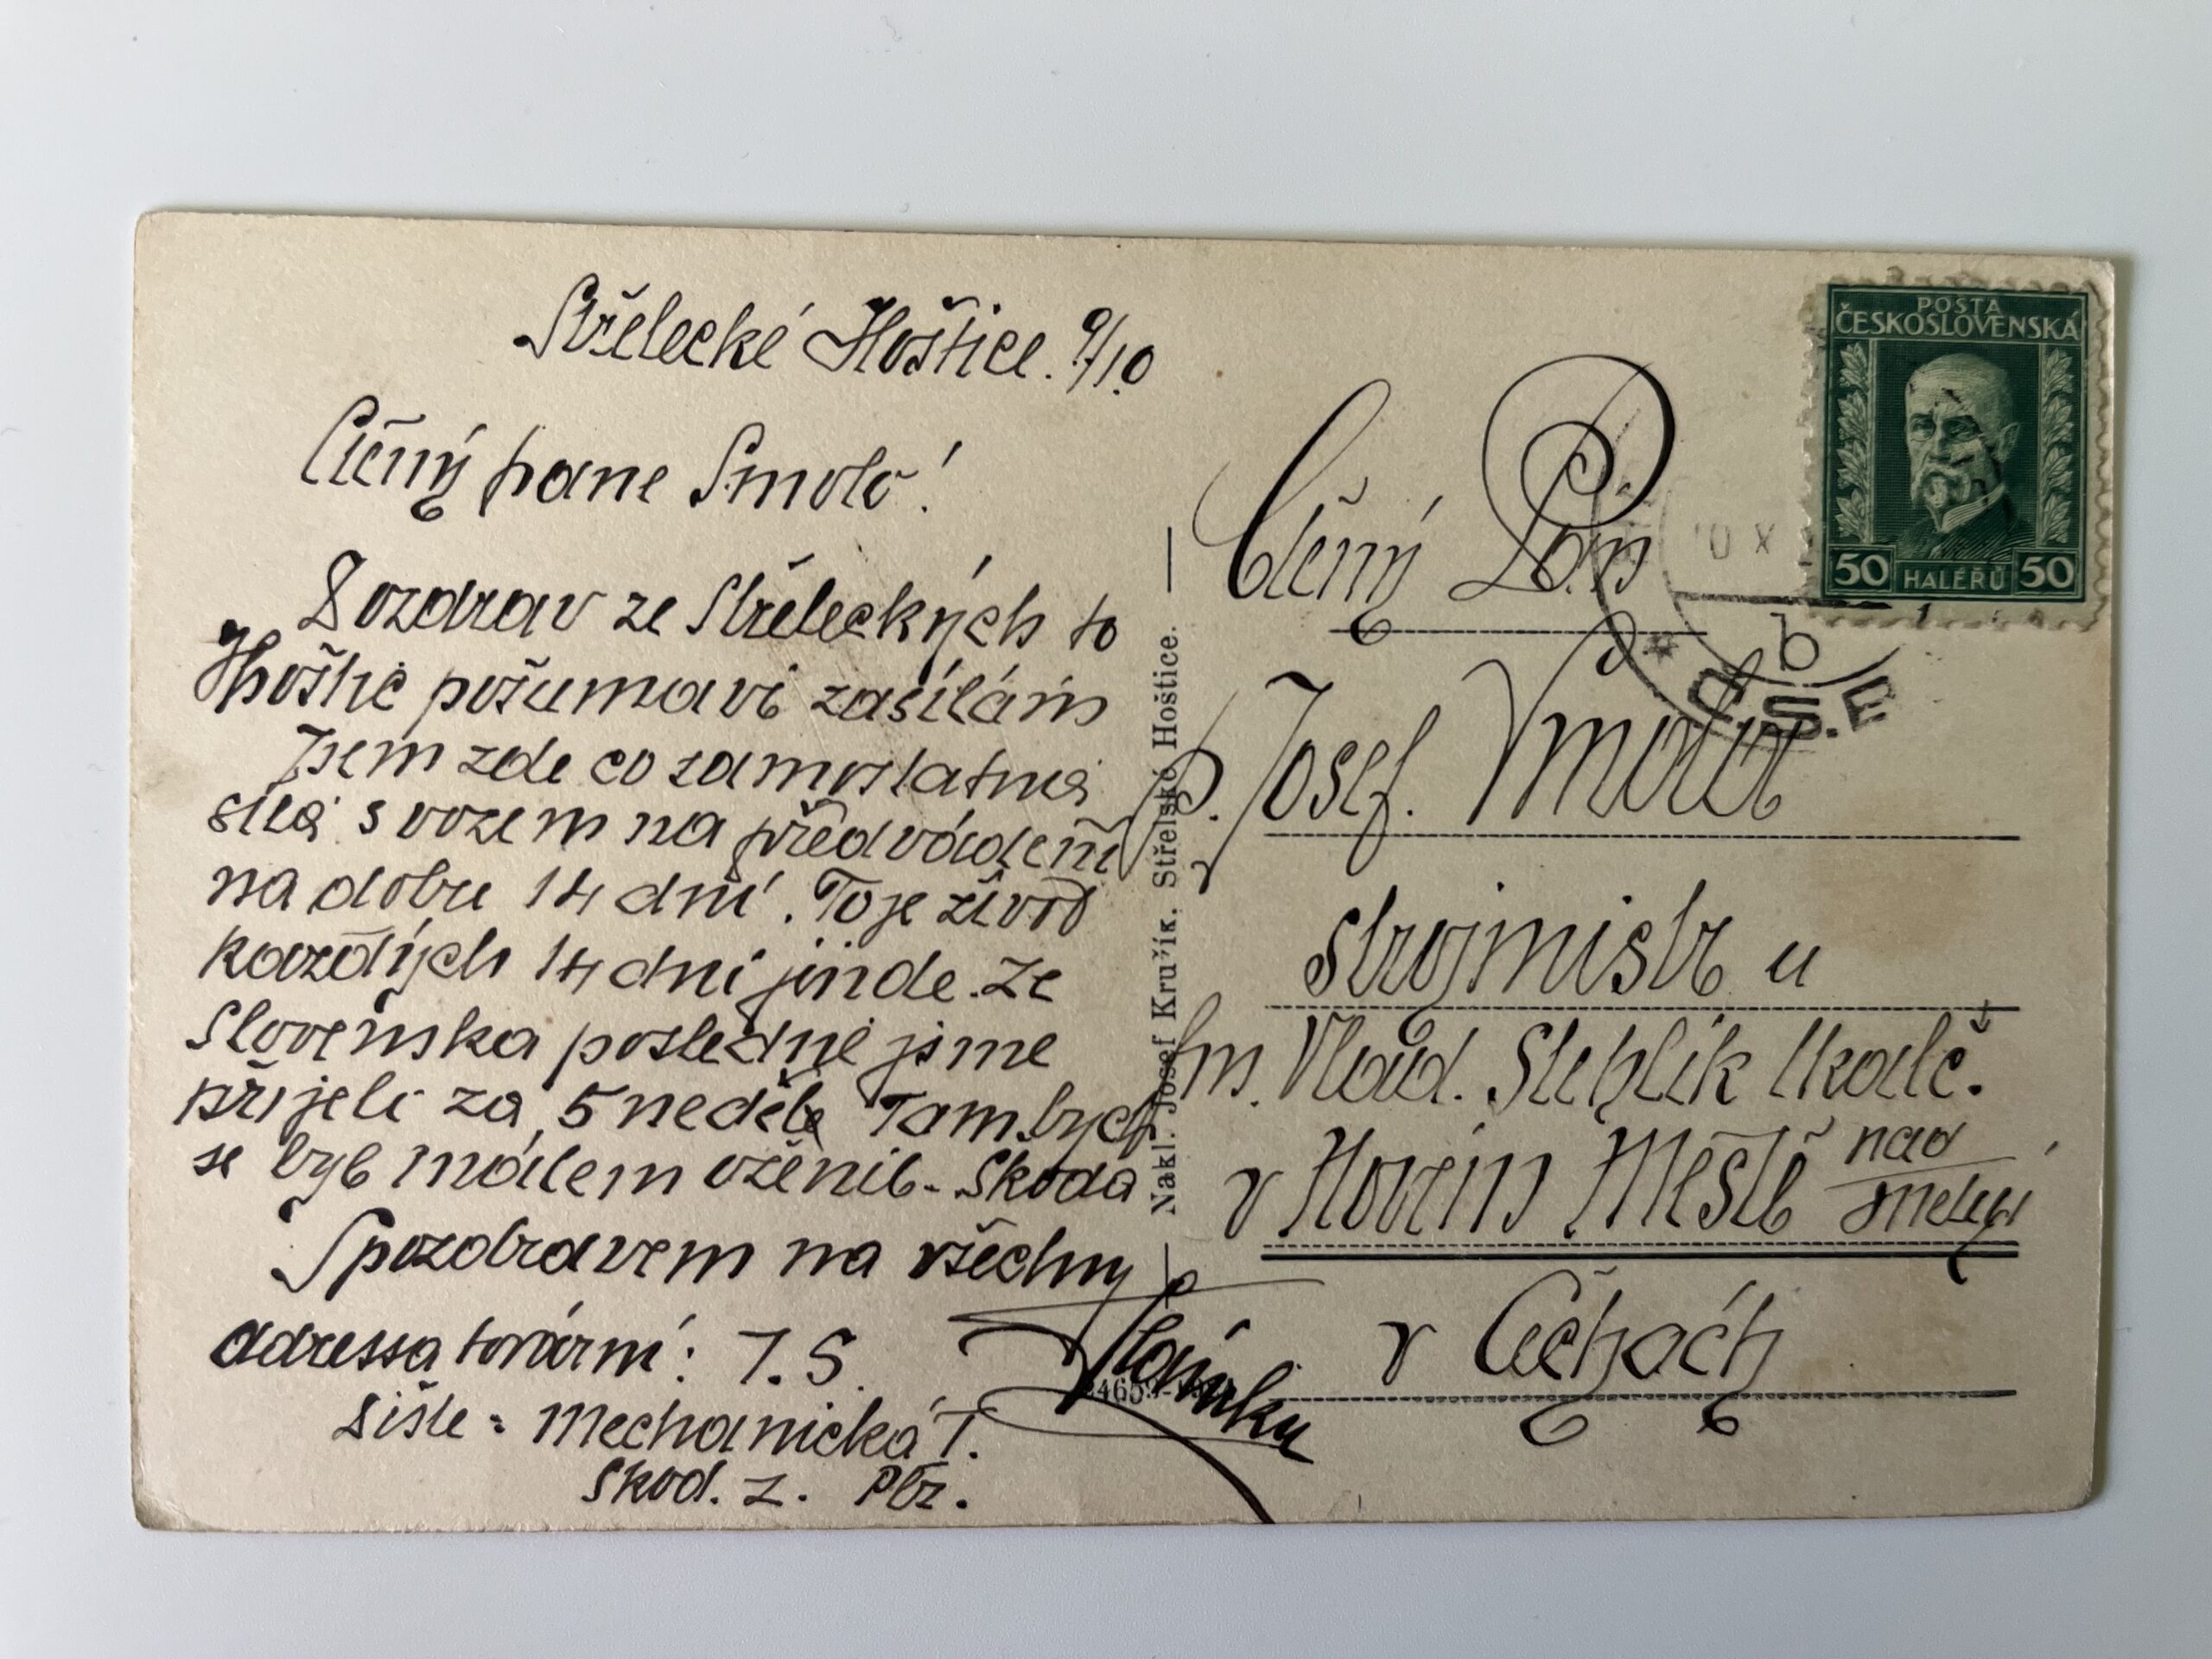 Střelecké Hoštice. 9/10
Ctěný pane Smolo!
Pozdrav ze Střeleckých to
Hoštic pošumaví zasílám
Jsem zde co samostatná
síla s vozem na předváděni
na dobu 14 dní. To je život
každých 14 dní jinde. Ze
Slovenska posledně jsme
přijeli za 5 neděle Tam bych
se byl málem oženil - Skoda
S pozdravem na všechny
adressa tovární: J. S.
Slánku
Pište = Mechanická T.
Skod. z. Plz.
Nakl. Josef Kružík. Střelské Hoštice.
POŠTA
ČESKOSLOVENSKÁ
50 HALÉŘŮ 50
10 X
b
Č.S.E
Ctěný Pán
P. Josef. Smola
strojmistr u
fm. Vlad. Steplík tkalč.
v Novém Městě nad
Metují
v Čechách